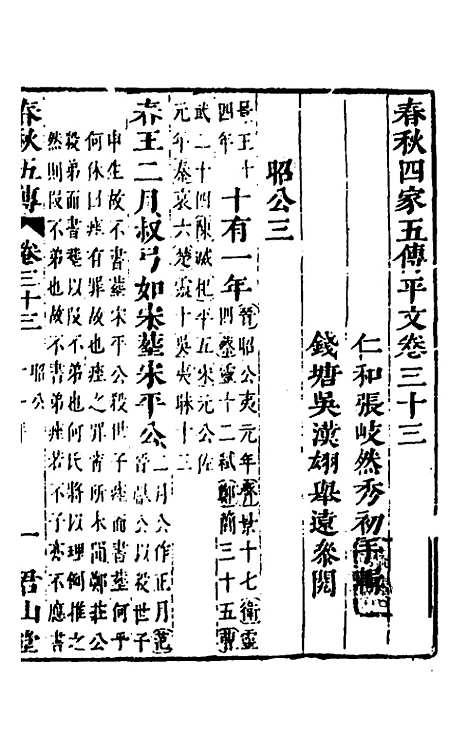 春秋四家五傳平文卷三十三
仁和張岐然秀初手輯
錢塘吳漢翊舉遠參閱
昭公三
景王十四年
十有一年
晉昭公夷元年齊景十七衛靈四蔡靈十二弒鄭簡三十五曹
武二十四陳滅杞平五宋元公佐
元年秦哀六楚靈十吳夷昧十三
春王二月叔弓如宋葬宋平公
二月公作正月范
甯晉獻公以殺世子
申生故不書葬宋平公殺世子痤而書葬何乎
何休曰痤有罪故也痤之罪甯所未聞鄭莊公
殺弟而書葬以段不弟也何氏將以理例推之
然則段不弟也故不書弟痤若不子亦不應書
春秋五傳
卷三十三
昭公
十一年
一
君山堂